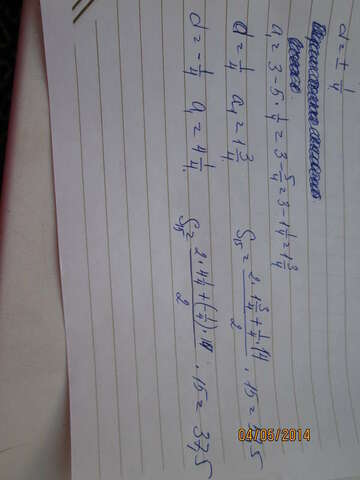 d = ± 1/4
a₁ = 3 - 5 · 1/4 = 3 - 5/4 = 3 - 1 1/4 = 1 3/4
d = 1/4 a₁ = 1 3/4 S₁₅ = (2 · 1 3/4 + 1/4 · 14)/2 · 15 = 52,5
d = -1/4 a₁ = 4 1/4 S₁₅ = (2 · 4 1/4 + (-1/4) · 14)/2 · 15 = 37,5
04/05/2014